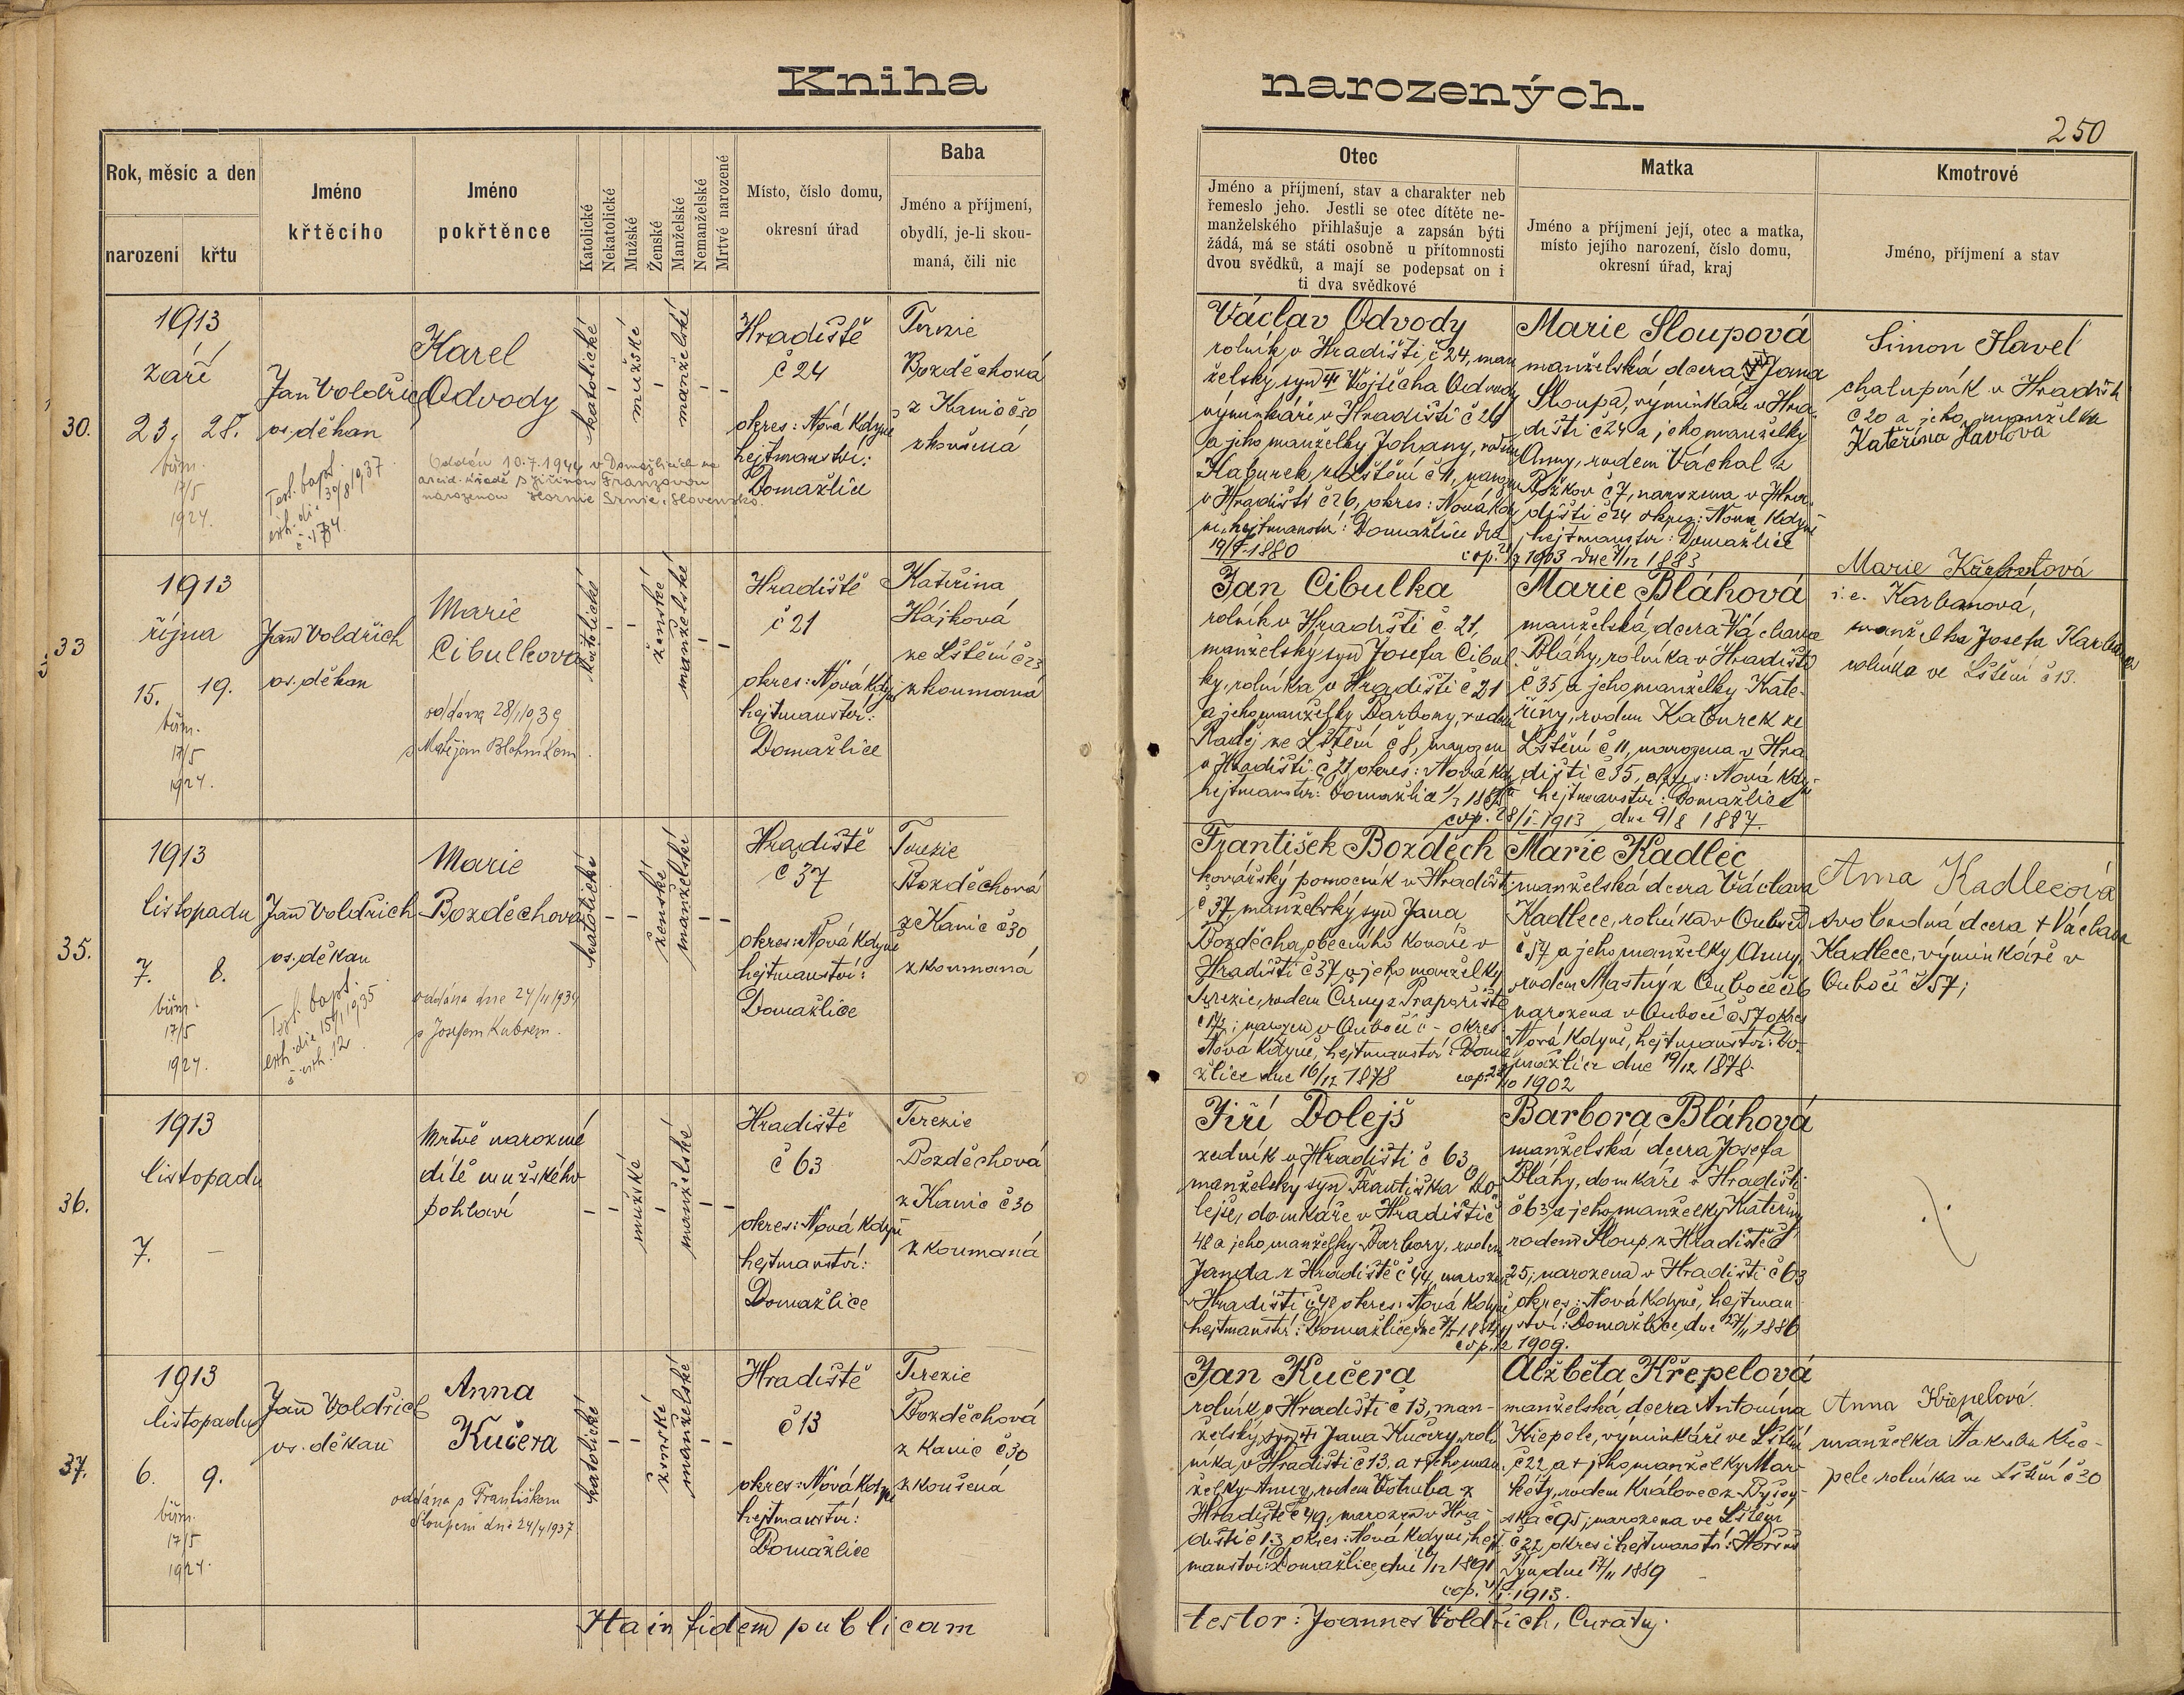 Kniha narozených.
250
Rok, měsíc a den
narození
křtu
Jméno
křtěcího
Jméno
pokřtěnce
Katolické
Nekatolické
Mužské
Ženské
Manželské
Nemanželské
Mrtvé narozené
Místo, číslo domu,
okresní úřad
Baba
Jméno a příjmení,
obydlí, je-li skou-
maná, čili nic
Otec
Jméno a příjmení, stav a charakter neb
řemeslo jeho. Jestli se otec dítěte ne-
manželského přihlašuje a zapsán býti
žádá, má se státi osobně u přítomnosti
dvou svědků, a mají se podepsat on i
ti dva svědkové
Matka
Jméno a příjmení její, otec a matka,
místo jejího narození, číslo domu,
okresní úřad, kraj
Kmotrové
Jméno, příjmení a stav
30.
1913
září
23. 28.
biřm.
17/5
1924.
Jan Voldřich
os. děkan
Test. bapt.
exh. die 30/8 1937
č. 1784.
Karel
Odvody
Oddán 10.7.1944 v Domažlicích na
s Jiřinou Franzovou
narozenou Hornie Srnie, Slovensko.
katolické
mužské
manželské
Hradiště
č 24
okres: Nová Kdyně
hejtmanství:
Domažlice
Terezie
Bozděchová
z Kanic č 30
zkoušená
Václav Odvody
rolník v Hradišti č 24, man
želský syn Vojtěcha Odvody
výminkáře v Hradišti č 26
a jeho manželky Johany, rodem
Kaburek ze Lštění č 11, narozen
v Hradišti č 26, okres: Nová Kdy
ně, hejtmanství: Domažlice dne
1880
Marie Sloupová
manželská dcera Jana
Sloupa, výminkáře v Hra-
dišti č 24 a jeho manželky
Anny, rodem Váchal z
č 7, narozena v Hra-
dišti č 24 okres: Nová Kdyně
hejtmanství: Domažlice
1903 dne 1883
Simon Havel
chalupník v Hradišti
č 20 a jeho manželka
Kateřina Havlová
33
1913
října
15. 19.
biřm.
17/5
1924.
Jan Voldřich
os. děkan
Marie
Cibulkova
oddaná 28/1 1939
s Matějem
katolické
ženské
manželské
Hradiště
č 21
okres: Nová Kdyně
hejtmanství:
Domažlice
Kateřina
Hájková
ze Lštění č 23
zkoumaná
Jan Cibulka
rolník v Hradišti č 21,
manželský syn Josefa Cibul-
ky, rolníka v Hradišti č 21
a jeho manželky Barbory, rodem
ze Lštění č 8, narozen
v Hradišti č 21, okres: Nová Kdy
hejtmanství: Domažlice
cop. 28/1 1913
Marie Bláhová
manželská dcera Václava
Bláhy, rolníka v Hradišti
č 35, a jeho manželky Kate-
řiny, rodem Kaburek ze
Lštění č 11, narozena v Hra
dišti č 35, okres: Nová Kdy-
hejtmanství: Domažlice
dne 9/8 1887.
Marie
i.e. Karbanová,
manželka Josefa
rolníka ve Lštění č 13.
35.
1913
listopadu
7. 8.
biřm.
17/5
1924.
Jan Voldřich
os. děkan
Test. bapt.
exh. die 15/1 1935
č. exh. 12
Marie
Bozděchova
oddána dne 24/11 1934
s Josefem Kubrem.
katolické
ženské
manželské
Hradiště
č 37
okres: Nová Kdyně
hejtmanství:
Domažlice
Terezie
Bozděchová
z Kanic č 30
zkoumaná
František Bozděch
kovářský pomocník v Hradišti
č 37, manželský syn Jana
Bozděcha, obecního kováře v
Hradišti č 37 a jeho manželky
Terezie, rodem Černý z
narozen v Oubočí č – okres:
Nová Kdyně, hejtmanství: Doma
žlice dne 16/12 1878
Marie Kadlec
manželská dcera Václava
Kadlece, rolníka v Oubočí
č 57 a jeho manželky Anny,
rodem Mastný z Oubočí č 26
narozena v Oubočí č 57 okres
Nová Kdyně, hejtmanství: Do-
mažlice dne 19/12 1878.
1902
Anna Kadlecová
svobodná dcera † Václava
Kadlece, výminkáře v
Oubočí č 57;
36.
1913
listopadu
7. –
Mrtvě narozené
dítě mužského
pohlaví
mužské
manželské
Hradiště
č 63
okres: Nová Kdyně
hejtmanství:
Domažlice
Terezie
Bozděchová
z Kanic č 30
zkoumaná
Jiří Dolejš
zedník v Hradišti č 63
manželský syn Františka Do-
lejše, domkáře v Hradišti č
48 a jeho manželky Barbory, rodem
Janda z Hradiště č 44, narozen
v Hradišti č 48 okres: Nová Kdyně
hejtmanství: Domažlice dne
Barbora Bláhová
manželská dcera Josefa
Bláhy, domkáře v Hradišti
č 63 a jeho manželky Kateřiny
rodem Sloup z Hradiště č
25; narozena v Hradišti č 63
okres: Nová Kdyně, hejtman-
ství: Domažlice, dne 27/11 1886
1909.
37.
1913
listopadu
6. 9.
biřm.
17/5
1924.
Jan Voldřich
os. děkan
Anna
Kučera
oddána s Františkem
Sloupem dne 24/4 1937.
katolické
ženské
manželské
Hradiště
č 13
okres: Nová Kdyně
hejtmanství:
Domažlice
Terezie
Bozděchová
z Kanic č 30
zkoušená
Jan Kučera
rolník v Hradišti č 13, man-
želský syn Jana Kučery, rol-
níka v Hradišti č 13, a † jeho man-
želky Anny, rodem Votruba z
Hradiště č 49, narozen v Hra-
dišti č 13 okres: Nová Kdyně; hejt-
manství: Domažlice, dne 1891
1913.
Alžběta Křepelová
manželská dcera Antonína
Křepele, výminkáře ve Lštění
č 22 a † jeho manželky Mar-
kéty, rodem Královec z
č 95; narozena ve Lštění
č 22, okres i hejtmanství: Horšův
Týn, dne 17/11 1889
Anna Křepelová
manželka Jakuba Kře-
pele, rolníka ve Lštění č 30
Ita in fidem publicam
testor: Joannes Voldřich, Curatus.